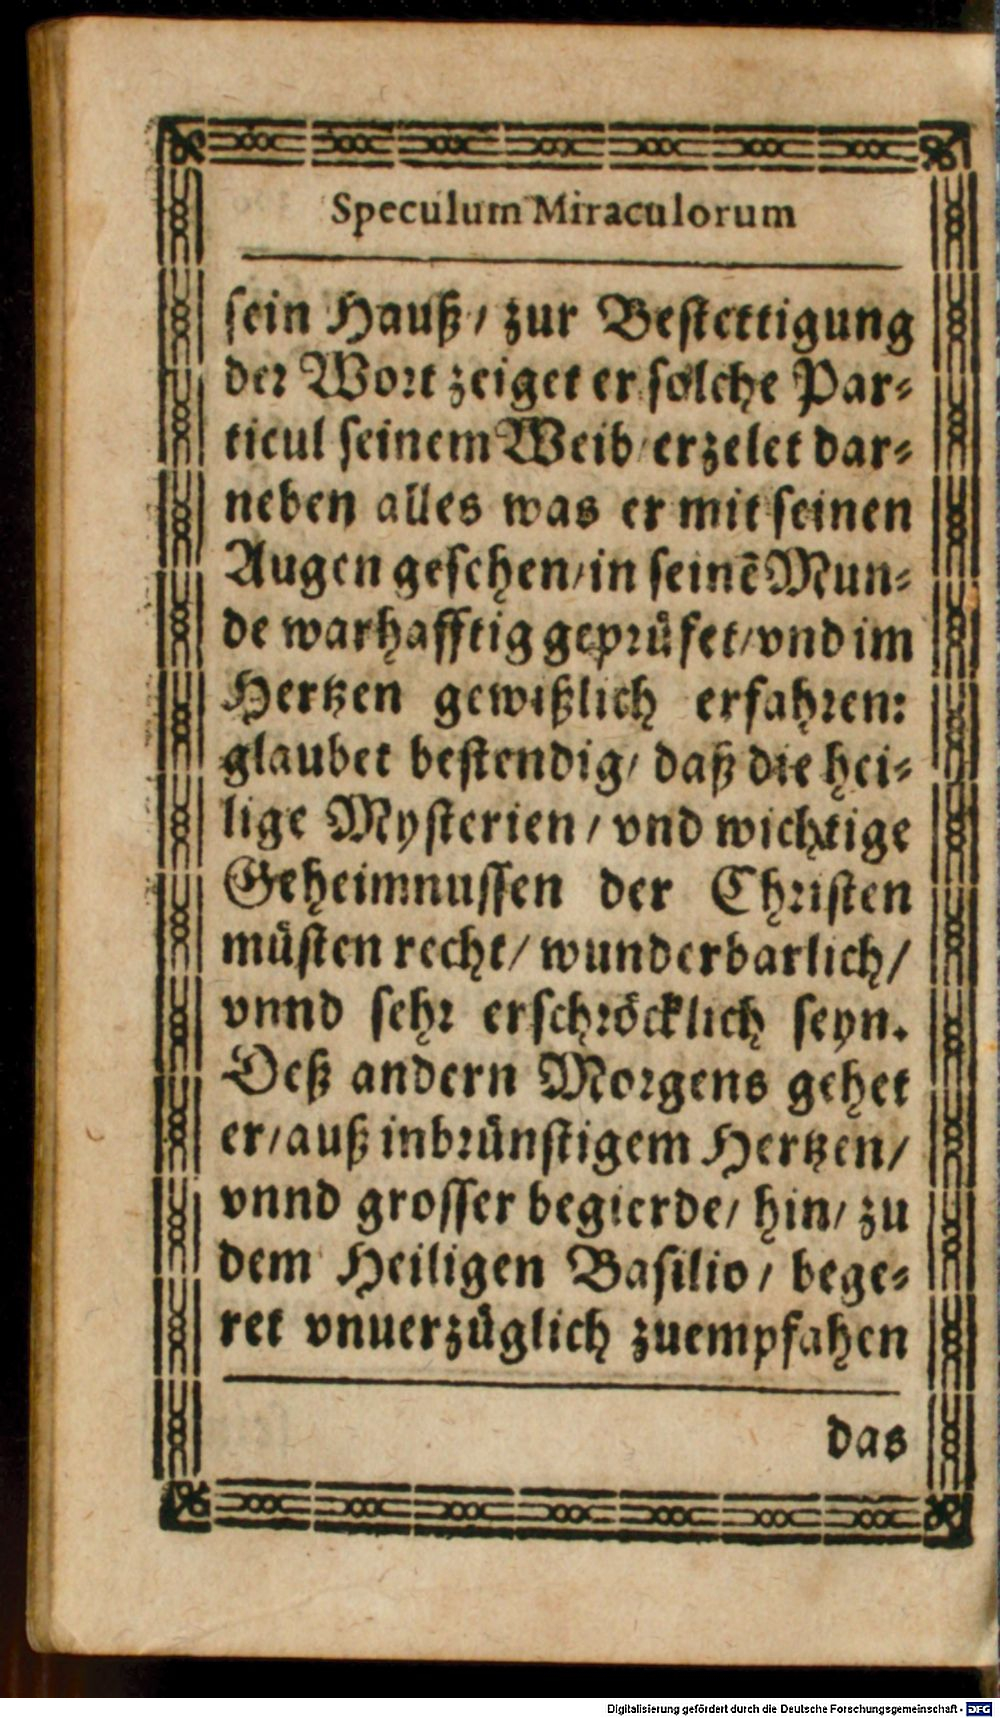 Speculum Miraculorum
sein Hauß / zur Bestettigung
der Wort zeiget er solche Par⸗
ticul seinem Weib / erzelet dar⸗
neben alles was er mit seinen
Augen gesehen / in seinẽ Mun⸗
de warhafftig geprüfet / vnd im
Hertzen gewißlich erfahren:
glaubet bestendig / daß die hei⸗
lige Mysterien / vnd wichtige
Geheimnussen der Christen
müsten recht / wunderbarlich /
vnnd sehr erschröcklich seyn.
Deß andern Morgens gehet
er / auß inbrünstigem Hertzen /
vnnd grosser begierde / hin / zu
dem Heiligen Basilio / bege⸗
ret vnuerzüglich zuempfahen
das
Digitalisierung gefördert durch die Deutsche Forschungsgemeinschaft - DFG